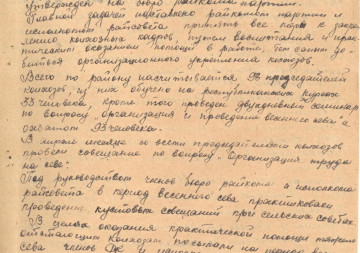 Утвержден на бюро райкома партии.
Главной задачей райкома партии и
исполкома райсовета
колхозных кадров, путем воспитания и прак-
тического оказания помощи в работе, тем самым до-
биться организационного укрепления колхозов.
Всего по району насчитывается 93 председателей
колхозов, из них обучено на республиканских курсах
33 человека, кроме того проведен двухдневный семинар
по вопросу "Организация и проведение весеннего сева" с
охватом 93 человека.
В марте месяце со всеми председателями колхозов
провели совещание по вопросу "Организация труда
на севе".
Под руководством членов бюро райкома и исполкома
райсовета в период весеннего сева практиковали
проведены кустовых совещаний при сельских советах.
В целях оказания практической помощи
отстающим колхозам посылали на период
сева членов